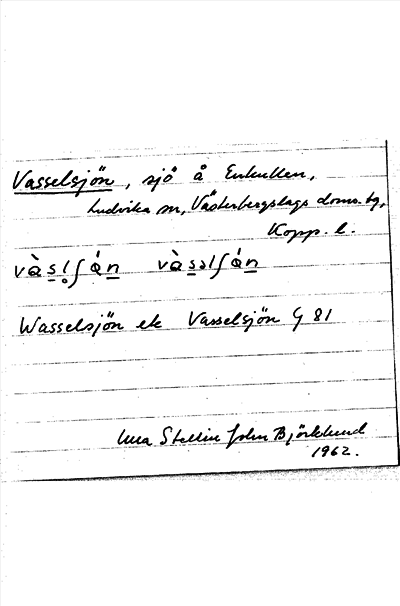 Vasselsjön, sjö å Enkullen,
Ludvika sn, Västerbergslags doms.tg,
Kopp. l.
vàsl̥ʃán vàsəlʃán
Wasselsjön ek Vasselsjön G 81
Stellin John Björklund
1962.